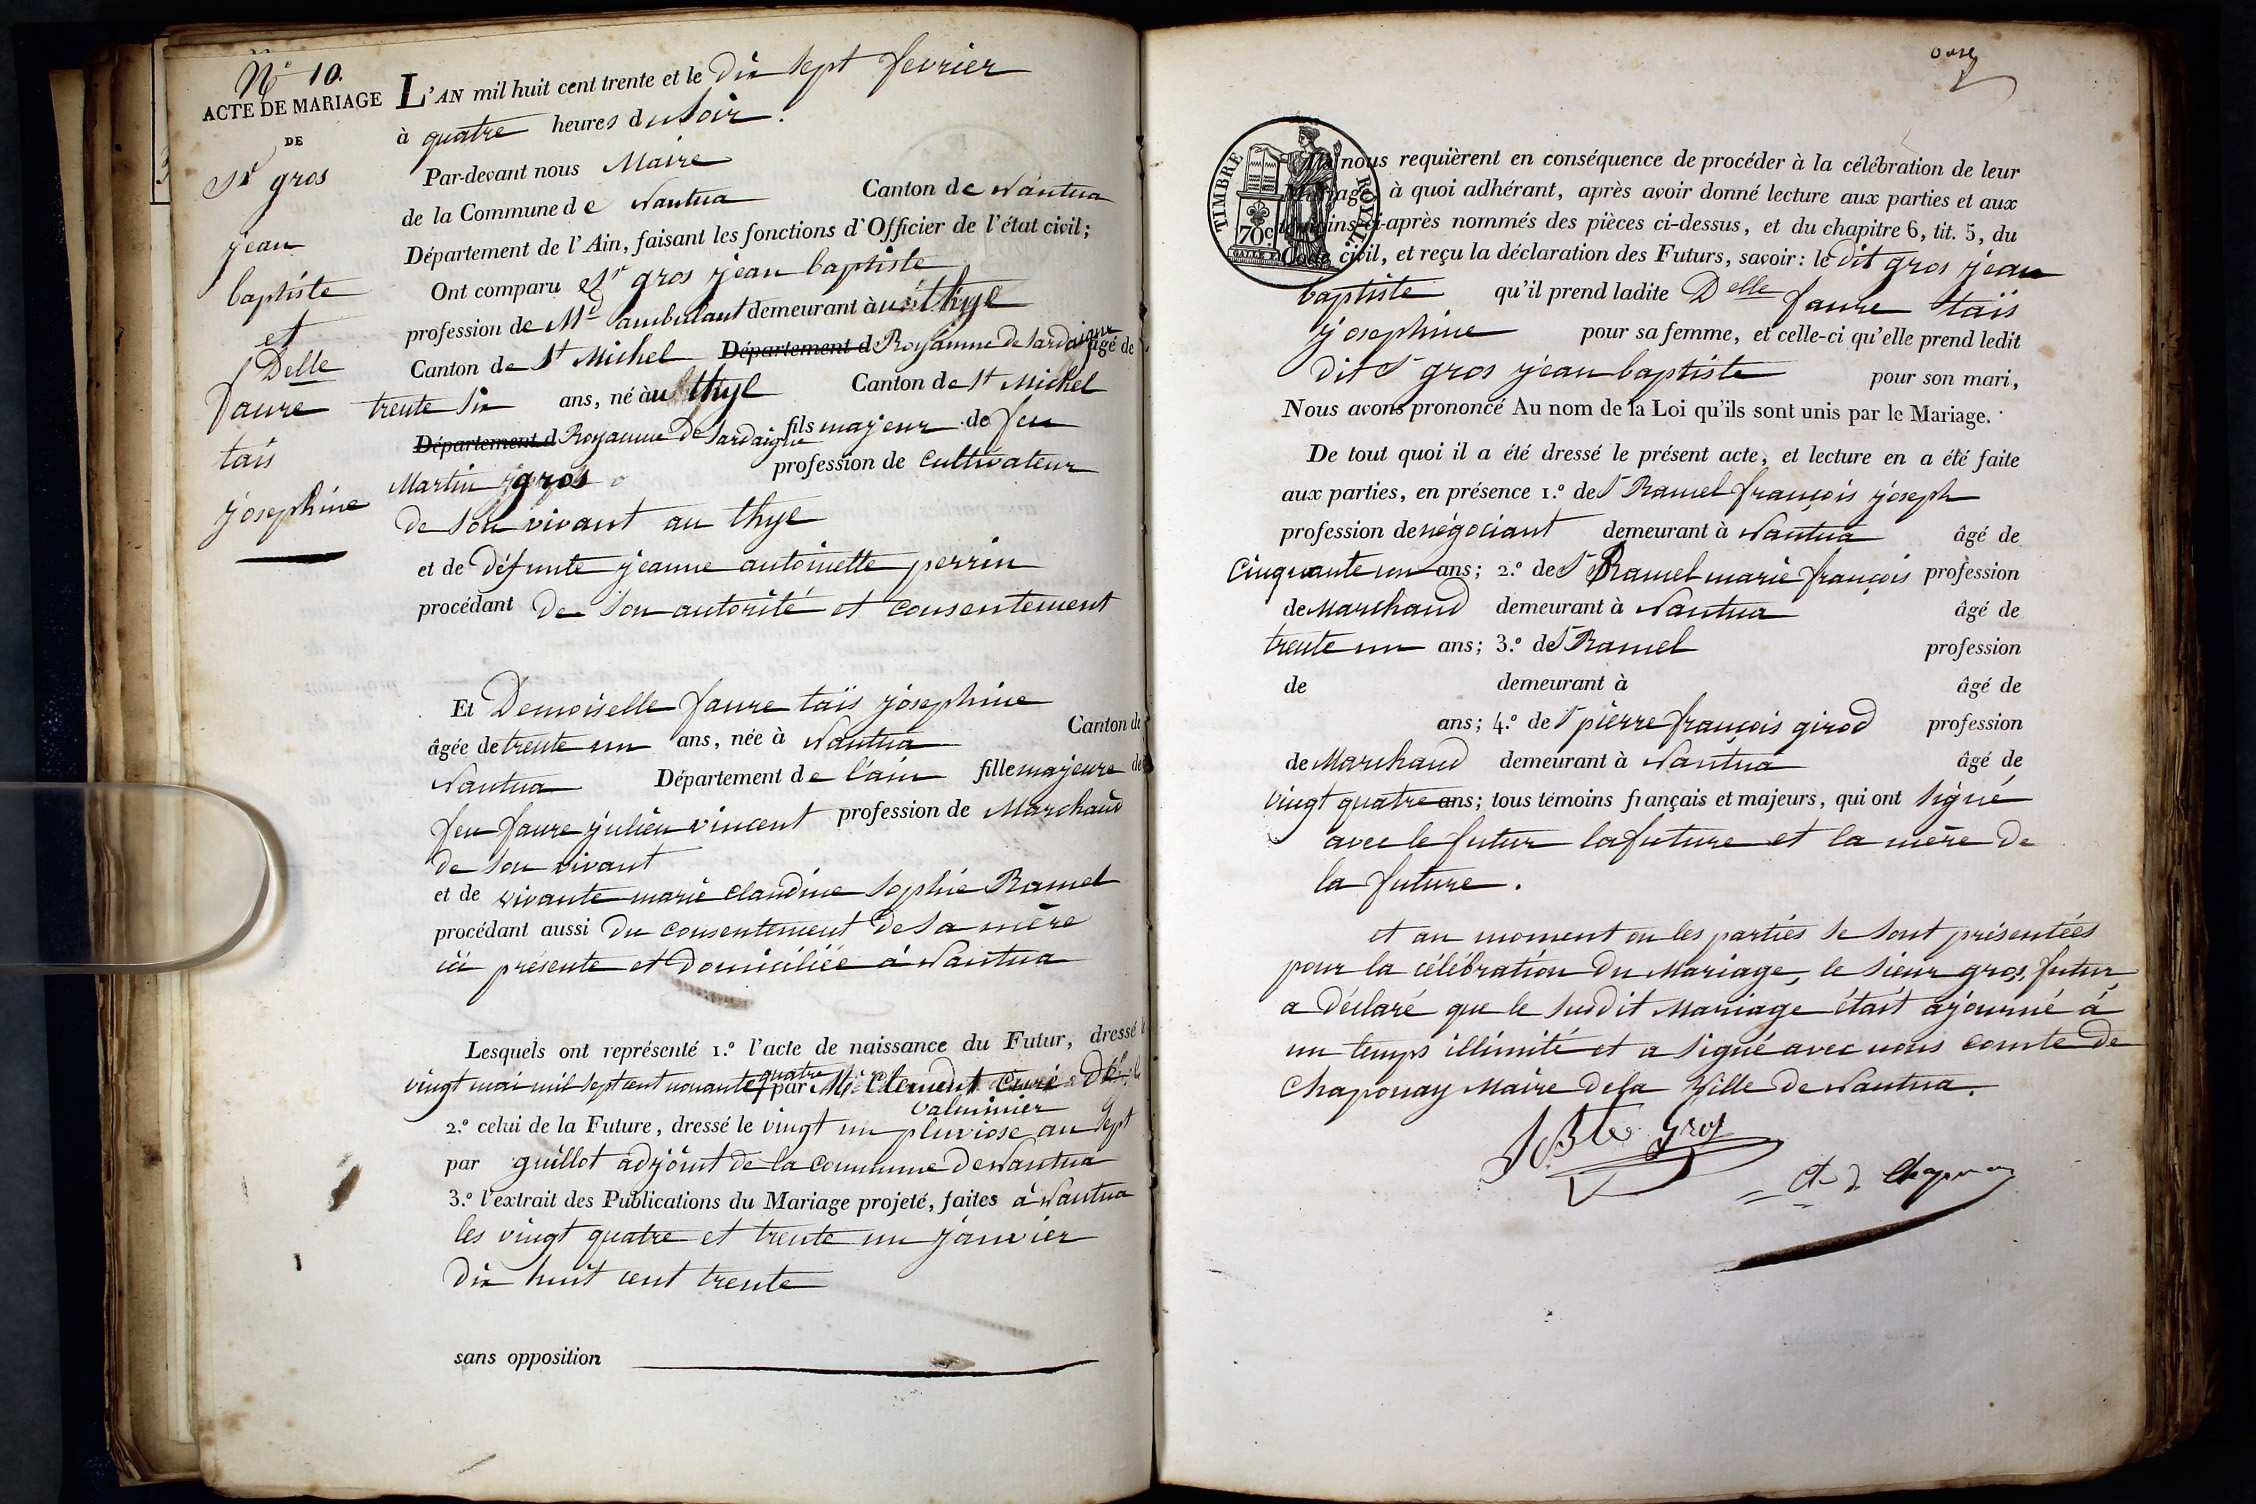 N.º 10.
ACTE DE MARIAGE
DE
Sr gros
jean
baptiste
et
Delle
faure
taïs
josephine
L'AN mil huit cent trente et le dix sept fevrier
à quatre heures du soir.
Par-devant nous Maire
de la Commune de Nantua Canton de Nantua
Département de l'Ain, faisant les fonctions d'Officier de l'état civil;
Ont comparu Sr gros jean baptiste
profession de Md ambulant demeurant à au thyl
Canton de St Michel Département d Royaume de Sardaigne âgé de
trente six ans, né à au thyl Canton de St Michel
Département d Royaume de Sardaigne fils majeur de feu
Martin gros profession de cultivateur
de son vivant au thyl
et de défunte jeanne antoinette perrin
procédant de son autorité et consentement
Et Demoiselle faure taïs josephine
âgée de trente un ans, née à Nantua Canton de
Nantua Département de l'ain fille majeure de
feu faure julien vincent profession de Marchand
de son vivant
et de vivante marie claudine sophie Ramel
procédant aussi du consentement de sa mère
ici présente et domiciliée à Nantua
Lesquels ont représenté 1.º l'acte de naissance du Futur, dressé
vingt mai mil sept cent nonante quatre par Mr Clement Curé
valminier
2.º celui de la Future, dressé le vingt un pluviose an sept
par guillot adjoint de la commune de Nantua
3.º l'extrait des Publications du Mariage projeté, faites à Nantua
les vingt quatre et trente un janvier
dix huit cent trente
sans opposition
onze
TIMBRE ROYAL
70 c
Ils nous requièrent en conséquence de procéder à la célébration de leur
Mariage, à quoi adhérant, après avoir donné lecture aux parties et aux
témoins ci-après nommés des pièces ci-dessus, et du chapitre 6, tit. 5, du
Code civil, et reçu la déclaration des Futurs, savoir: le dit gros jean
baptiste qu'il prend ladite Delle faure taïs
josephine pour sa femme, et celle-ci qu'elle prend ledit
dit Sr gros jean baptiste pour son mari,
Nous avons prononcé Au nom de la Loi qu'ils sont unis par le Mariage.
De tout quoi il a été dressé le présent acte, et lecture en a été faite
aux parties, en présence 1.º de Sr Ramel françois joseph
profession de négociant demeurant à Nantua âgé de
cinquante un ans; 2.º de Sr Ramel marie françois profession
de Marchand demeurant à Nantua âgé de
trente un ans; 3.º de Sr Ramel profession
de demeurant à âgé de
ans; 4.º de Sr pierre françois girod profession
de Marchand demeurant à Nantua âgé de
vingt quatre ans; tous témoins français et majeurs, qui ont signé
avec le futur la future et la mère de
la future.
et au moment ou les parties se sont présentées
pour la célébration du Mariage, le sieur gros, futur
a déclaré que le susdit Mariage était ajourné à
un temps illimité et a signé avec nous comte de
Chaponay Maire de la Ville de Nantua.
JBte Gros
Cte de Chaponay